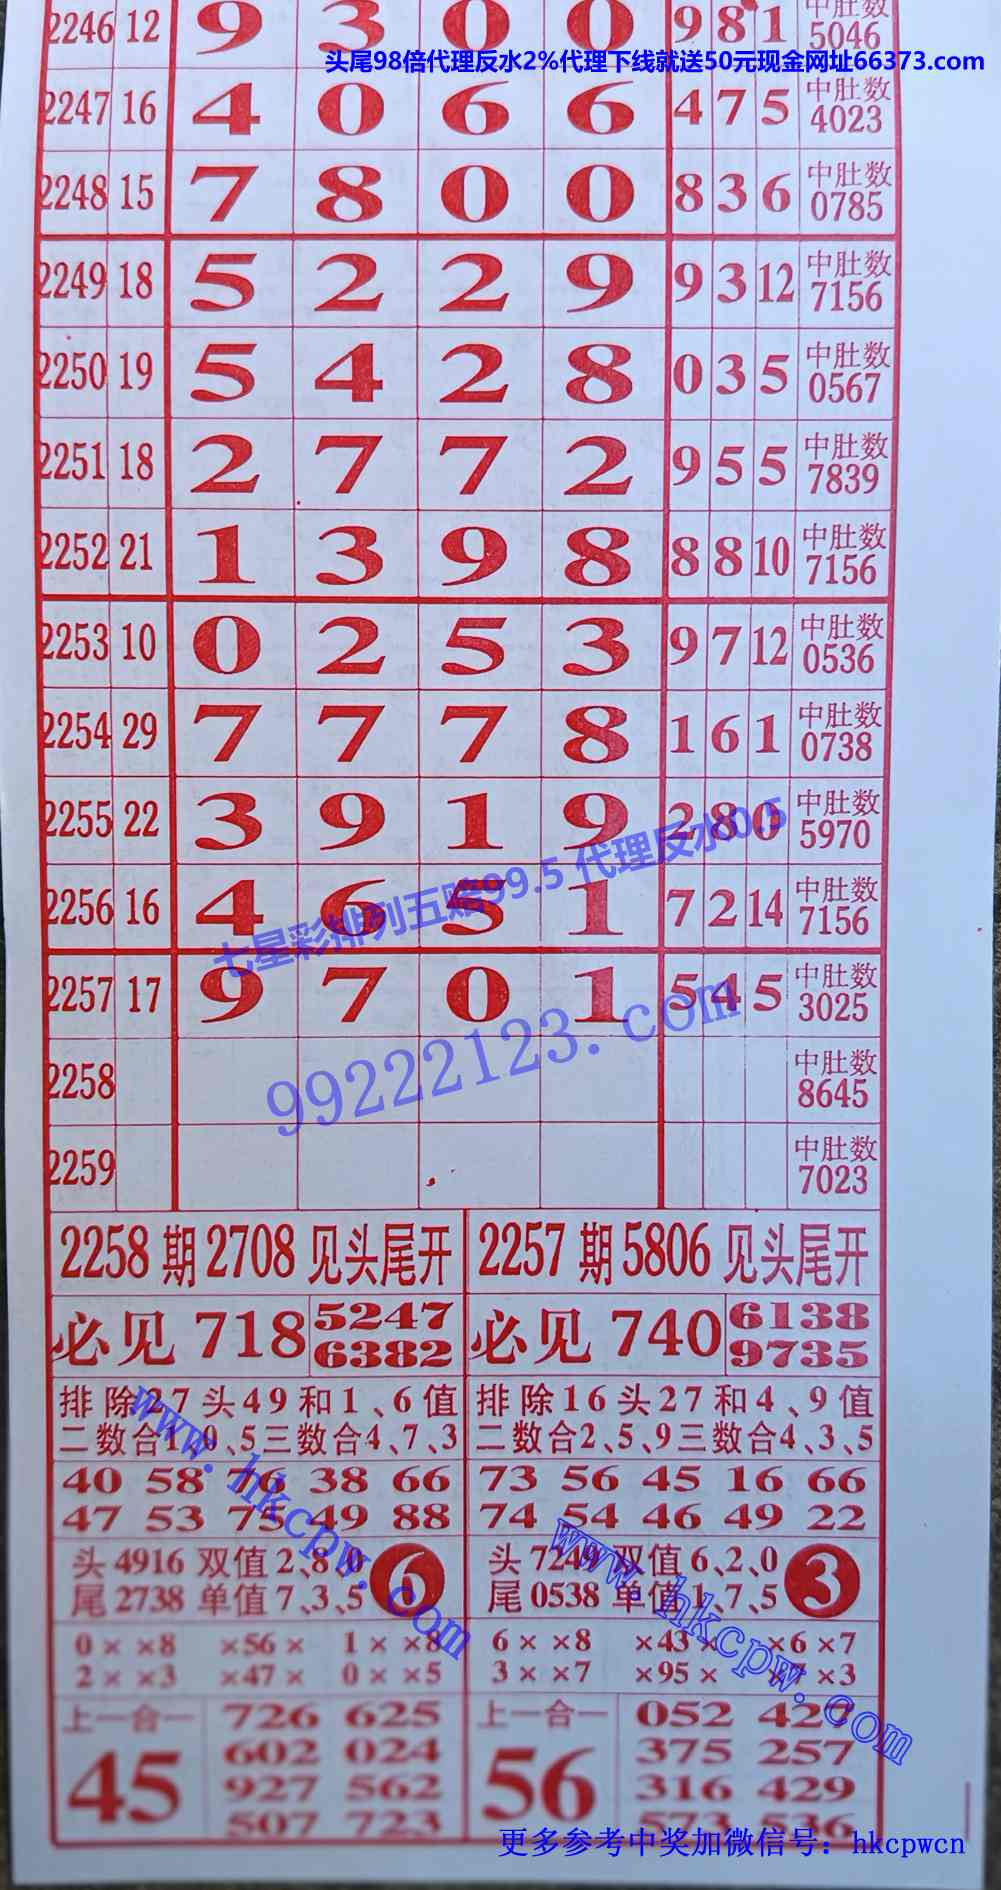 2246 12 9 3 0 0 9 8 1 中肚数 5046
头尾98倍代理反水2%代理下线就送50元现金网址66373.com
2247 16 4 0 6 6 4 7 5 中肚数 4023
2248 15 7 8 0 0 8 3 6 中肚数 0785
2249 18 5 2 2 9 9 3 12 中肚数 7156
2250 19 5 4 2 8 0 3 5 中肚数 0567
2251 18 2 7 7 2 9 5 5 中肚数 7839
2252 21 1 3 9 8 8 8 10 中肚数 7156
2253 10 0 2 5 3 9 7 12 中肚数 0536
2254 29 7 7 7 8 1 6 1 中肚数 0738
2255 22 3 9 1 9 2 8 0 中肚数 5970
七星彩排列五赔99.5 代理反水0.5
2256 16 4 6 5 1 7 2 14 中肚数 7156
2257 17 9 7 0 1 5 4 5 中肚数 3025
99222123.com
2258 中肚数 8645
2259 中肚数 7023
2258期2708见头尾开 2257期5806见头尾开
必见718 5247 必见740 6138
6382 9735
排除27头49和1、6值 排除16头27和4、9值
二数合1、0、5三数合4、7、3 二数合2、5、9三数合4、3、5
40 58 76 38 66 73 56 45 16 66
47 53 75 49 88 74 54 46 49 22
头4916双值2、8、0 6 头7249双值6、2、0 3
尾2738单值7、3、5 尾0538单值1、7、5
0××8 ×56× 1××8 6××8 ×43× ×6×7
2××3 ×47× 0××5 3××7 ×95× ×7×3
上一合一 726 625 上一合一 052 427
45 602 024 56 375 257
927 562 316 429
507 723 573 536
www.hkcpw.com
www.hkcpw.com
更多参考中奖加微信号：hkcpwcn